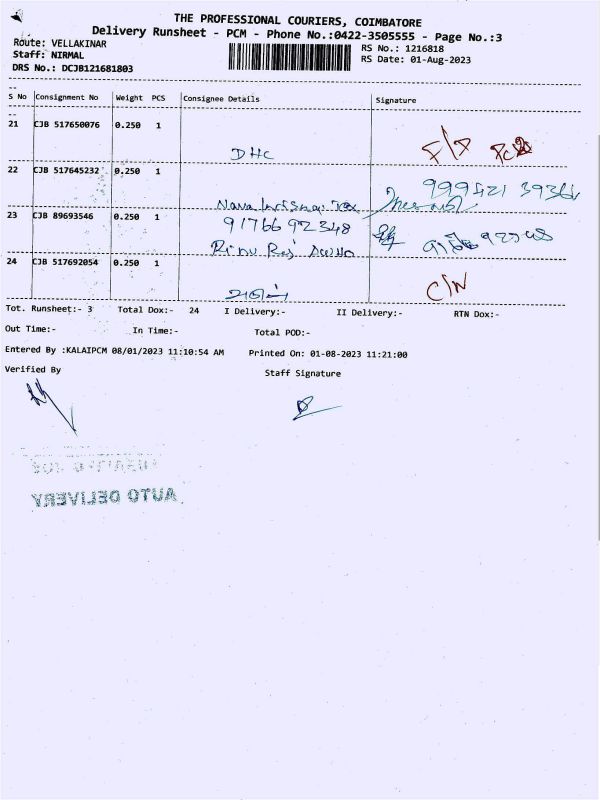 THE PROFESSIONAL COURIERS, COIMBATORE
Delivery Runsheet - PCM - Phone No.:0422-3505555 - Page No.:3
Route: VELLAKINAR RS No.: 1216818
Staff: NIRMAL RS Date: 01-Aug-2023
DRS No.: DCJB121681803
S No Consignment No Weight PCS Consignee Details Signature
21 CJB 517650076 0.250 1
DHC
22 CJB 517645232 0.250 1
23 CJB 89693546 0.250 1 9176692348
24 CJB 517692054 0.250 1
C/N
Tot. Runsheet:- 3 Total Dox:- 24 I Delivery:- II Delivery:- RTN Dox:-
Out Time:- In Time:- Total POD:-
Entered By :KALAIPCM 08/01/2023 11:10:54 AM Printed On: 01-08-2023 11:21:00
Verified By Staff Signature
AUTO DELIVERY